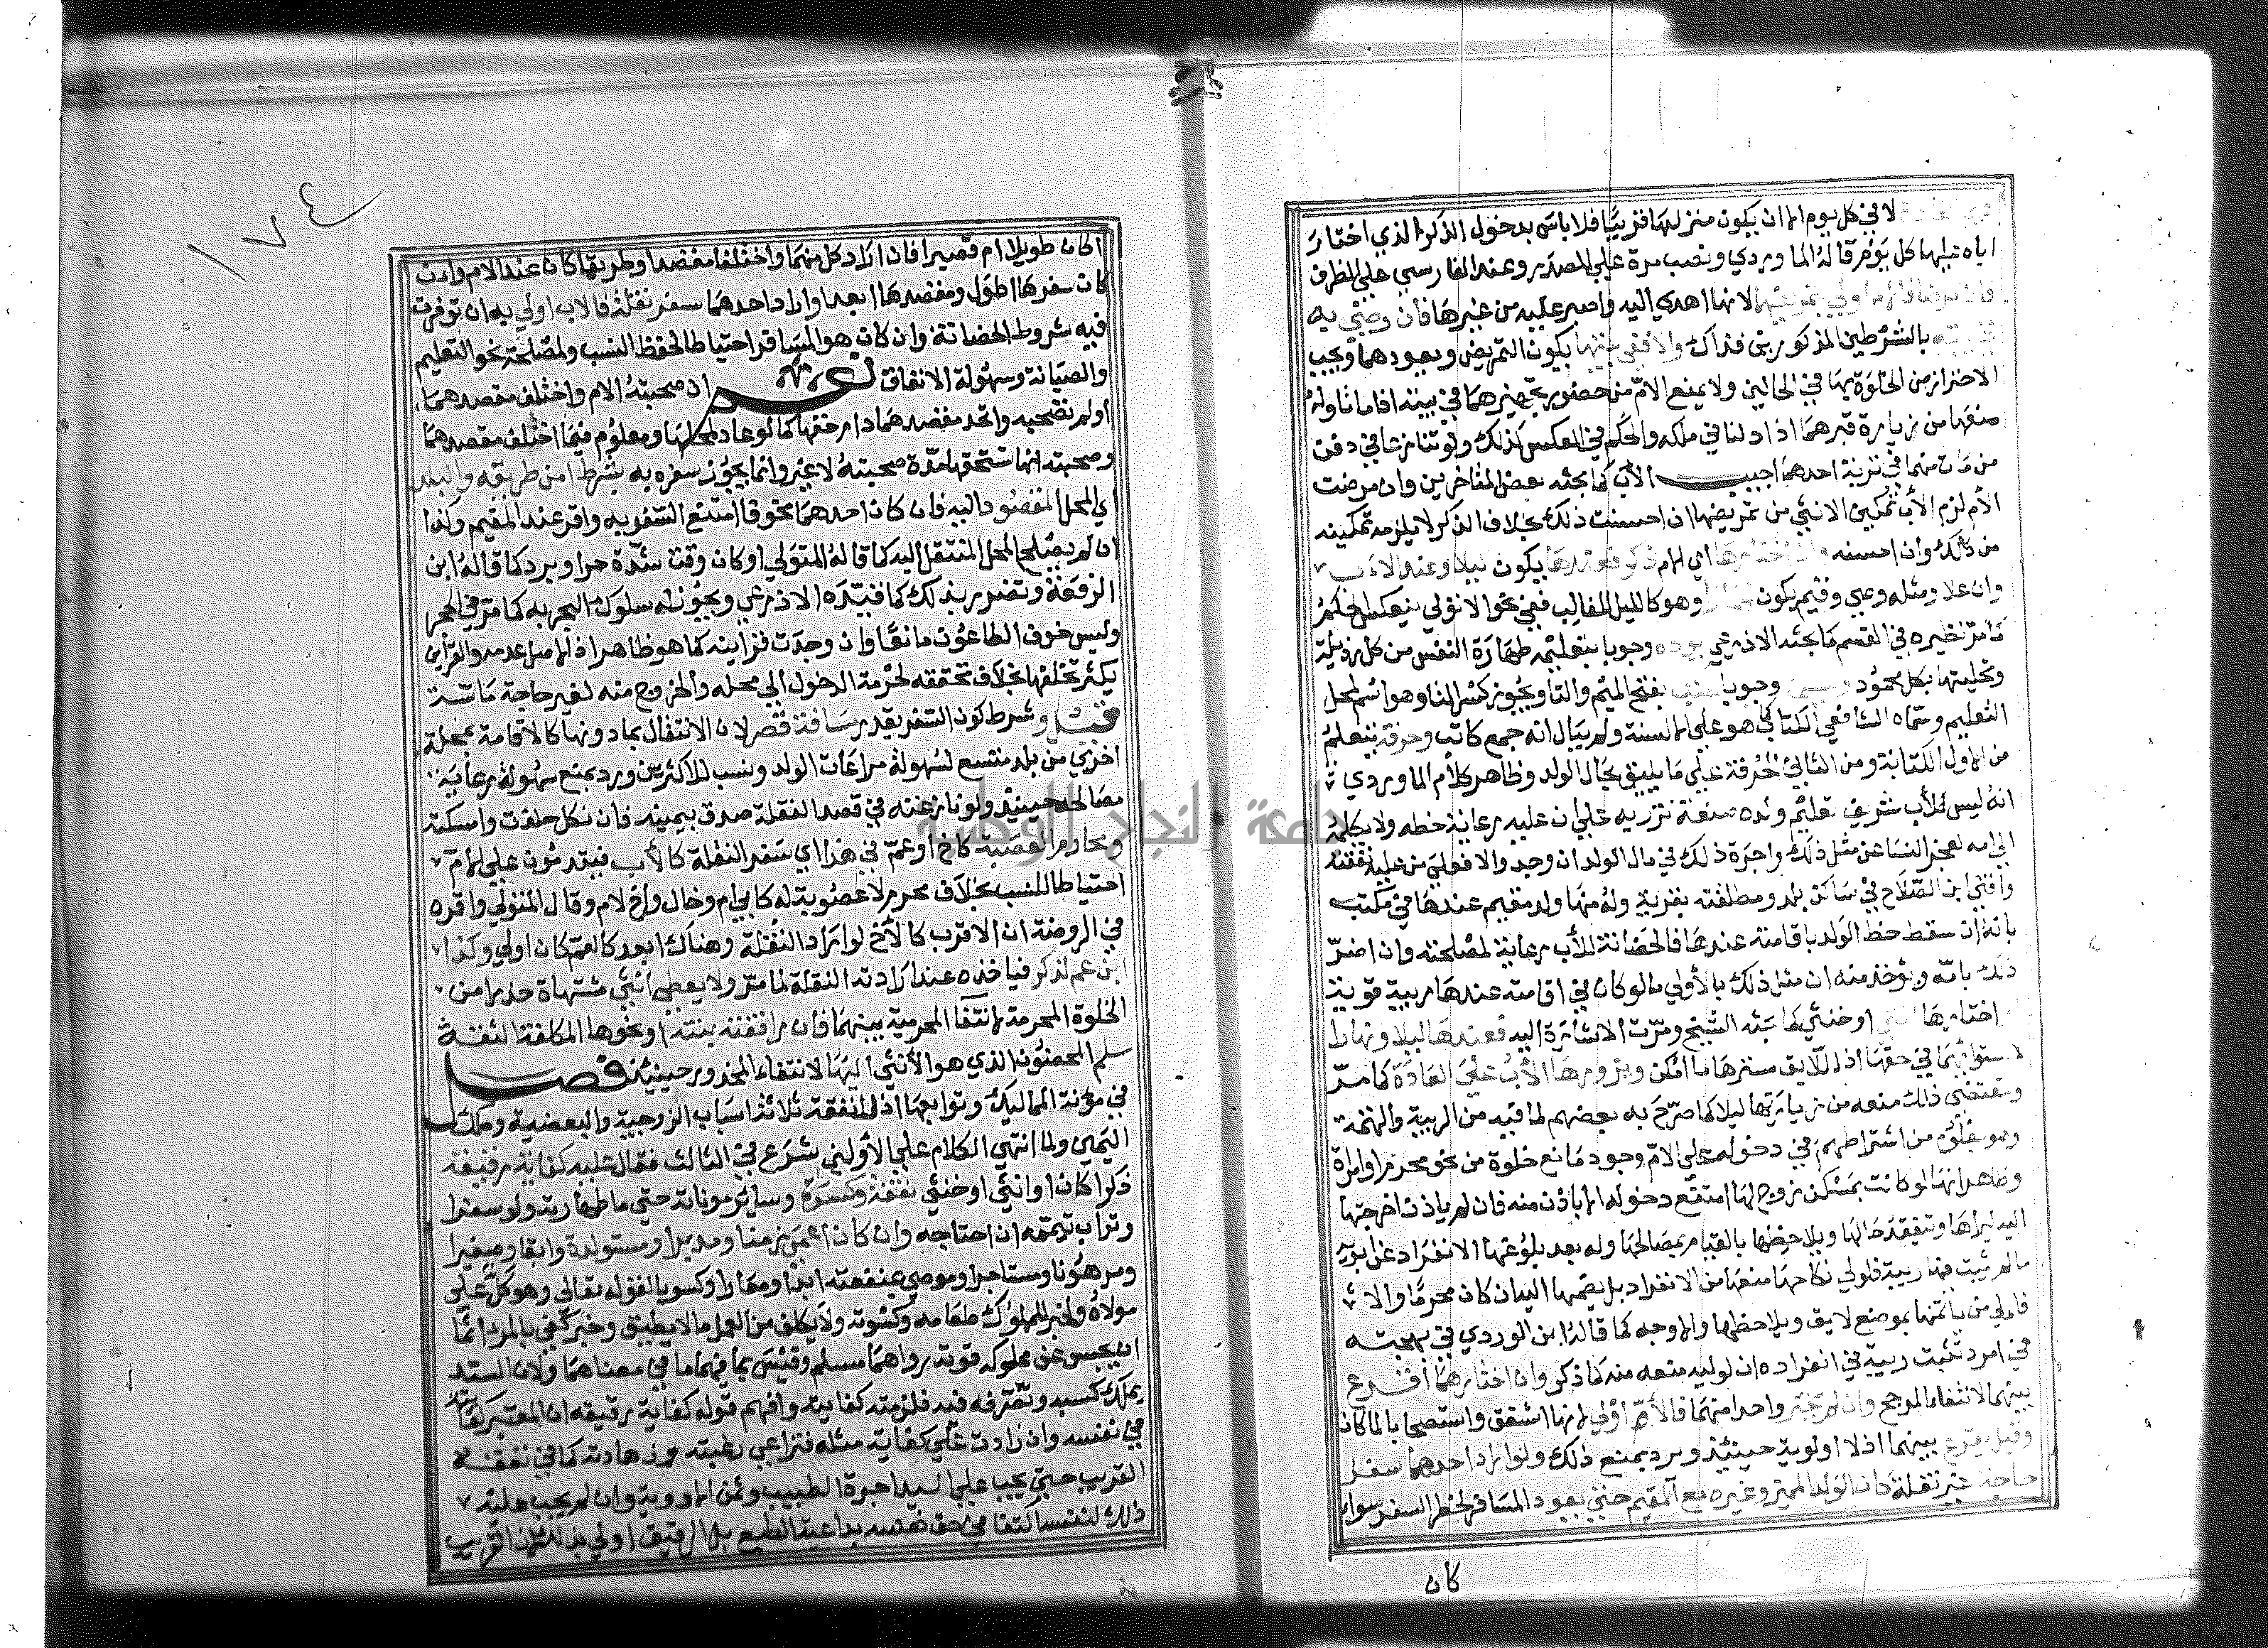 لا في كل يوم الا ان يكون منزلها قريبا فلا باس بدخول الذكر الذي اختار
اباه عليها كل يوم قاله الماوردي ونصب مرة على المصدر وعند الفارسي على الظرف
فان مرضا فالام اولى بتمريضهما لانها اهدى اليه واصبر عليه من غيرها فان رضي به
في بيته بالشرطين المذكورين فذاك والا ففي بيتها يكون التمريض ويعودهما ويجب
الاحتراز من الخلوة بها في الحالين ولا يمنع الام من حضور تجهيزهما في بيته اذا ماتا وله
منعها من زيارة قبرهما اذا دفنا في ملكه والحكم في العكس كذلك ولو تنازعا في دفن
من مات منهما في تربة احدهما اجيب الاب كما بحثه بعض المتاخرين وان مرضت
الام لزم الاب تمكين الانثى من تمريضها ان احسنت ذلك بخلاف الذكر لا يلزمه تمكينه
من ذلك وان احسنه وان اختارها اي الام ذكر فعندها يكون ليلا وعند الاب
وان علا ومثله وصي وقيم يكون نهارا وهو كالليل للغالب ففي نحو الاتوني ينعكس الحكم
كما مر نظيره في القسم كما بحثه الاذرعي يؤدبه وجوبا بتعليمه طهارة النفس من كل رذيلة
وتحليتها بكل محمود ويسلمه وجوبا لمكتب بفتح الميم والتا ويجوز كسر التا وهو اسم لمحل
التعليم وسماه الشافعي الكتاب كما هو على الالسنة ولم يبال انه جمع كاتب وحرفة يتعلم
من الاول الكتابة ومن الثاني الحرفة على ما يليق بحال الولد وظاهر كلام الماوردي
انه ليس للاب شريف تعليم ولده صنعة تزريه على ان عليه رعاية حظه ولا يكله
الى امه لعجز النسا عن مثل ذلك واجرة ذلك في مال الولد ان وجد والا فعلى من عليه نفقته
وافتى ابن الصلاح في ساكن بلد ومطلقته بقرية وله منها ولد مقيم عندها في مكتب
بانه ان سقط حظ الولد باقامته عندها فالحضانة للاب رعاية لمصلحته وان اضر
ذلك بامه ويؤخذ منه ان مثل ذلك بالاولى ما لو كان في اقامته عندها ريبة قوية
اختارها انثى او خنثى كما بحثه الشيخ ومرت الاشارة اليه فعندها ليلا ونهارا
لاستوائهما في حقها اذ اللايق سترها ما امكن ويزورها الاب على العادة كما مر
ومقتضى ذلك منعه من زيارتها ليلا كما صرح به بعضهم لما فيه من الريبة والتهمة
وهو معلوم من اشتراطهم في دخوله على الام وجود مانع خلوة من نحو محرم او امراة
وظاهر انها لو كانت بمسكن زوج لها امتنع دخوله الا باذن منه فان لم ياذن اخرجتها
اليه ليراها ويتفقد حالها ويلاحظها بالقيام بمصالحها وله بعد بلوغها الانفراد عن ابويه
ما لم تثبت فيه ريبة فلولي نكاحها منعها من الانفراد بل يضمها اليه ان كان محرما والا
فالى من ياتمنها بموضع لايق ويلاحظها والاوجه كما قاله ابن الوردي في بهجته
في امرد تثبت ريبة في انفراده ان لوليه منعه منه كما ذكر وان اختارهما اقرع
بينهما لانتفاء المرجح وان لم يختر واحدا منهما فالام اولى لانها اشفق واستصحابا لما كان
وقيل يقرع بينهما اذ لا اولوية حينئذ ويرد بمنع ذلك ولو اراد احدهما سفر
حاجة غير نقلة كان الولد المميز وغيره مع المقيم حتى يعود المسافر لخطر السفر سواء
كان
١٧٤
اكان طويلا ام قصيرا فان اراد كل منهما واختلفا مقصدا وطريقا كان عند الام وان
كان سفرها اطول ومقصدها ابعد او اراد احدهما سفر نقلة فالاب اولى به ان توفرت
فيه شروط الحضانة وان كان هو المسافر احتياطا لحفظ النسب ولمصلحة نحو التعليم
والصيانة وسهولة الانفاق نعم ان صحبته الام واختلف مقصدهما
او لم تصحبه واتحد مقصدهما دام حقها كما لو عاد لمحلها ومعلوم فيما اختلف مقصدهما
وصحبته انها تستحقها مدة صحبته لا غير وانما يجوز سفره به بشرط امن طريقه والبلد
اي المحل المقصود اليه فان كان احدهما مخوفا امتنع السفر به واقر عند المقيم وكذا
ان لم يصلح المحل المنتقل اليه كما قاله المتولي او كان وقت شدة حر او برد كما قاله ابن
الرفعة وتضرر بذلك كما قيده الاذرعي ويجوز له سلوك البحر به كما مر في الحجر
وليس خوف الطاعون مانعا وان وجدت قراينه كما هو ظاهر اذ الاصل عدمه والقراين
يكثر تخلفها بخلاف تحققه لحرمة الدخول الى محله والخروج منه لغير حاجة ماسة
قيل وشرط كون السفر بقدر مسافة قصر لان الانتقال بما دونها كالاقامة بمحلة
اخرى من بلد متسع لسهولة مراعات الولد ونسب للاكثرين ورد بمنع سهولة رعاية
مصالحه حينئذ ولو نازعته في قصد النقلة صدق بيمينه فان نكل حلفت وامسكته
ومحارم العصبة كاخ او عم في هذا اي سفر النقلة كالاب فيقدمون على الام
احتياطا للنسب بخلاف محرم لا عصوبة له كابي ام وخال واخ لام وقال المتولي واقره
في الروضة ان الاقرب كالاخ لو اراد النقلة وهناك ابعد كالعم كان اولى وكذا
ابن عم لذكر فياخذه عند ارادته النقلة لما مر ولا يعطى انثى مشتهاة حذرا من
الخلوة المحرمة لانتفا المحرمية بينهما فان رافقته بنته او نحوها المكلفة الثقة
سلم المحضون الذي هو الانثى اليها لانتفاء المحذور حينئذ فصل
في مؤنة المماليك وتوابعها اذ للنفقة ثلاثة اسباب الزوجية والبعضية وملك
اليمين ولما انتهى الكلام على الاولين شرع في الثالث فقال عليه كفاية رقيقه
ذكرا كان او انثى او خنثى نفقة وكسوة وساير موناته حتى ما طهارته ولو سفرا
وتراب تيممه ان احتاجه وان كان اعمى زمنا ومدبرا ومستولدة وابقا وصغيرا
ومرهونا ومستاجرا وموصى بمنفعته ابدا ومعارا وكسوبا لقوله تعالى وهو كل على
مولاه ولخبر للمملوك طعامه وكسوته ولا يكلف من العمل ما لا يطيق وخبر كفى بالمرء اثما
ان يحبس عن مملوكه قوته رواهما مسلم وقيس بما فيهما ما في معناهما ولان السيد
يملك كسبه وتصرفه فيه فلزمته كفايته وافهم قوله كفاية رقيقه ان المعتبر كفايته
في نفسه وان زادت على كفاية مثله فتراعى رغبته وزهادته كما في نفقة
القريب حتى يجب على السيد اجرة الطبيب وثمن الادوية وان لم يجب عليه
ذلك لنفسه اكتفا في حق نفسه بداعية الطبع بل الرقيق اولى بذلك من القريب
جامعة النجاح الوطنية